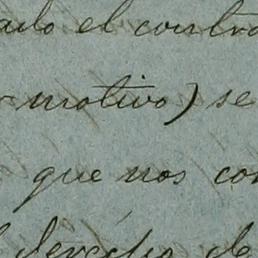 ado el contra
motivo) se
que nos con
derecho de